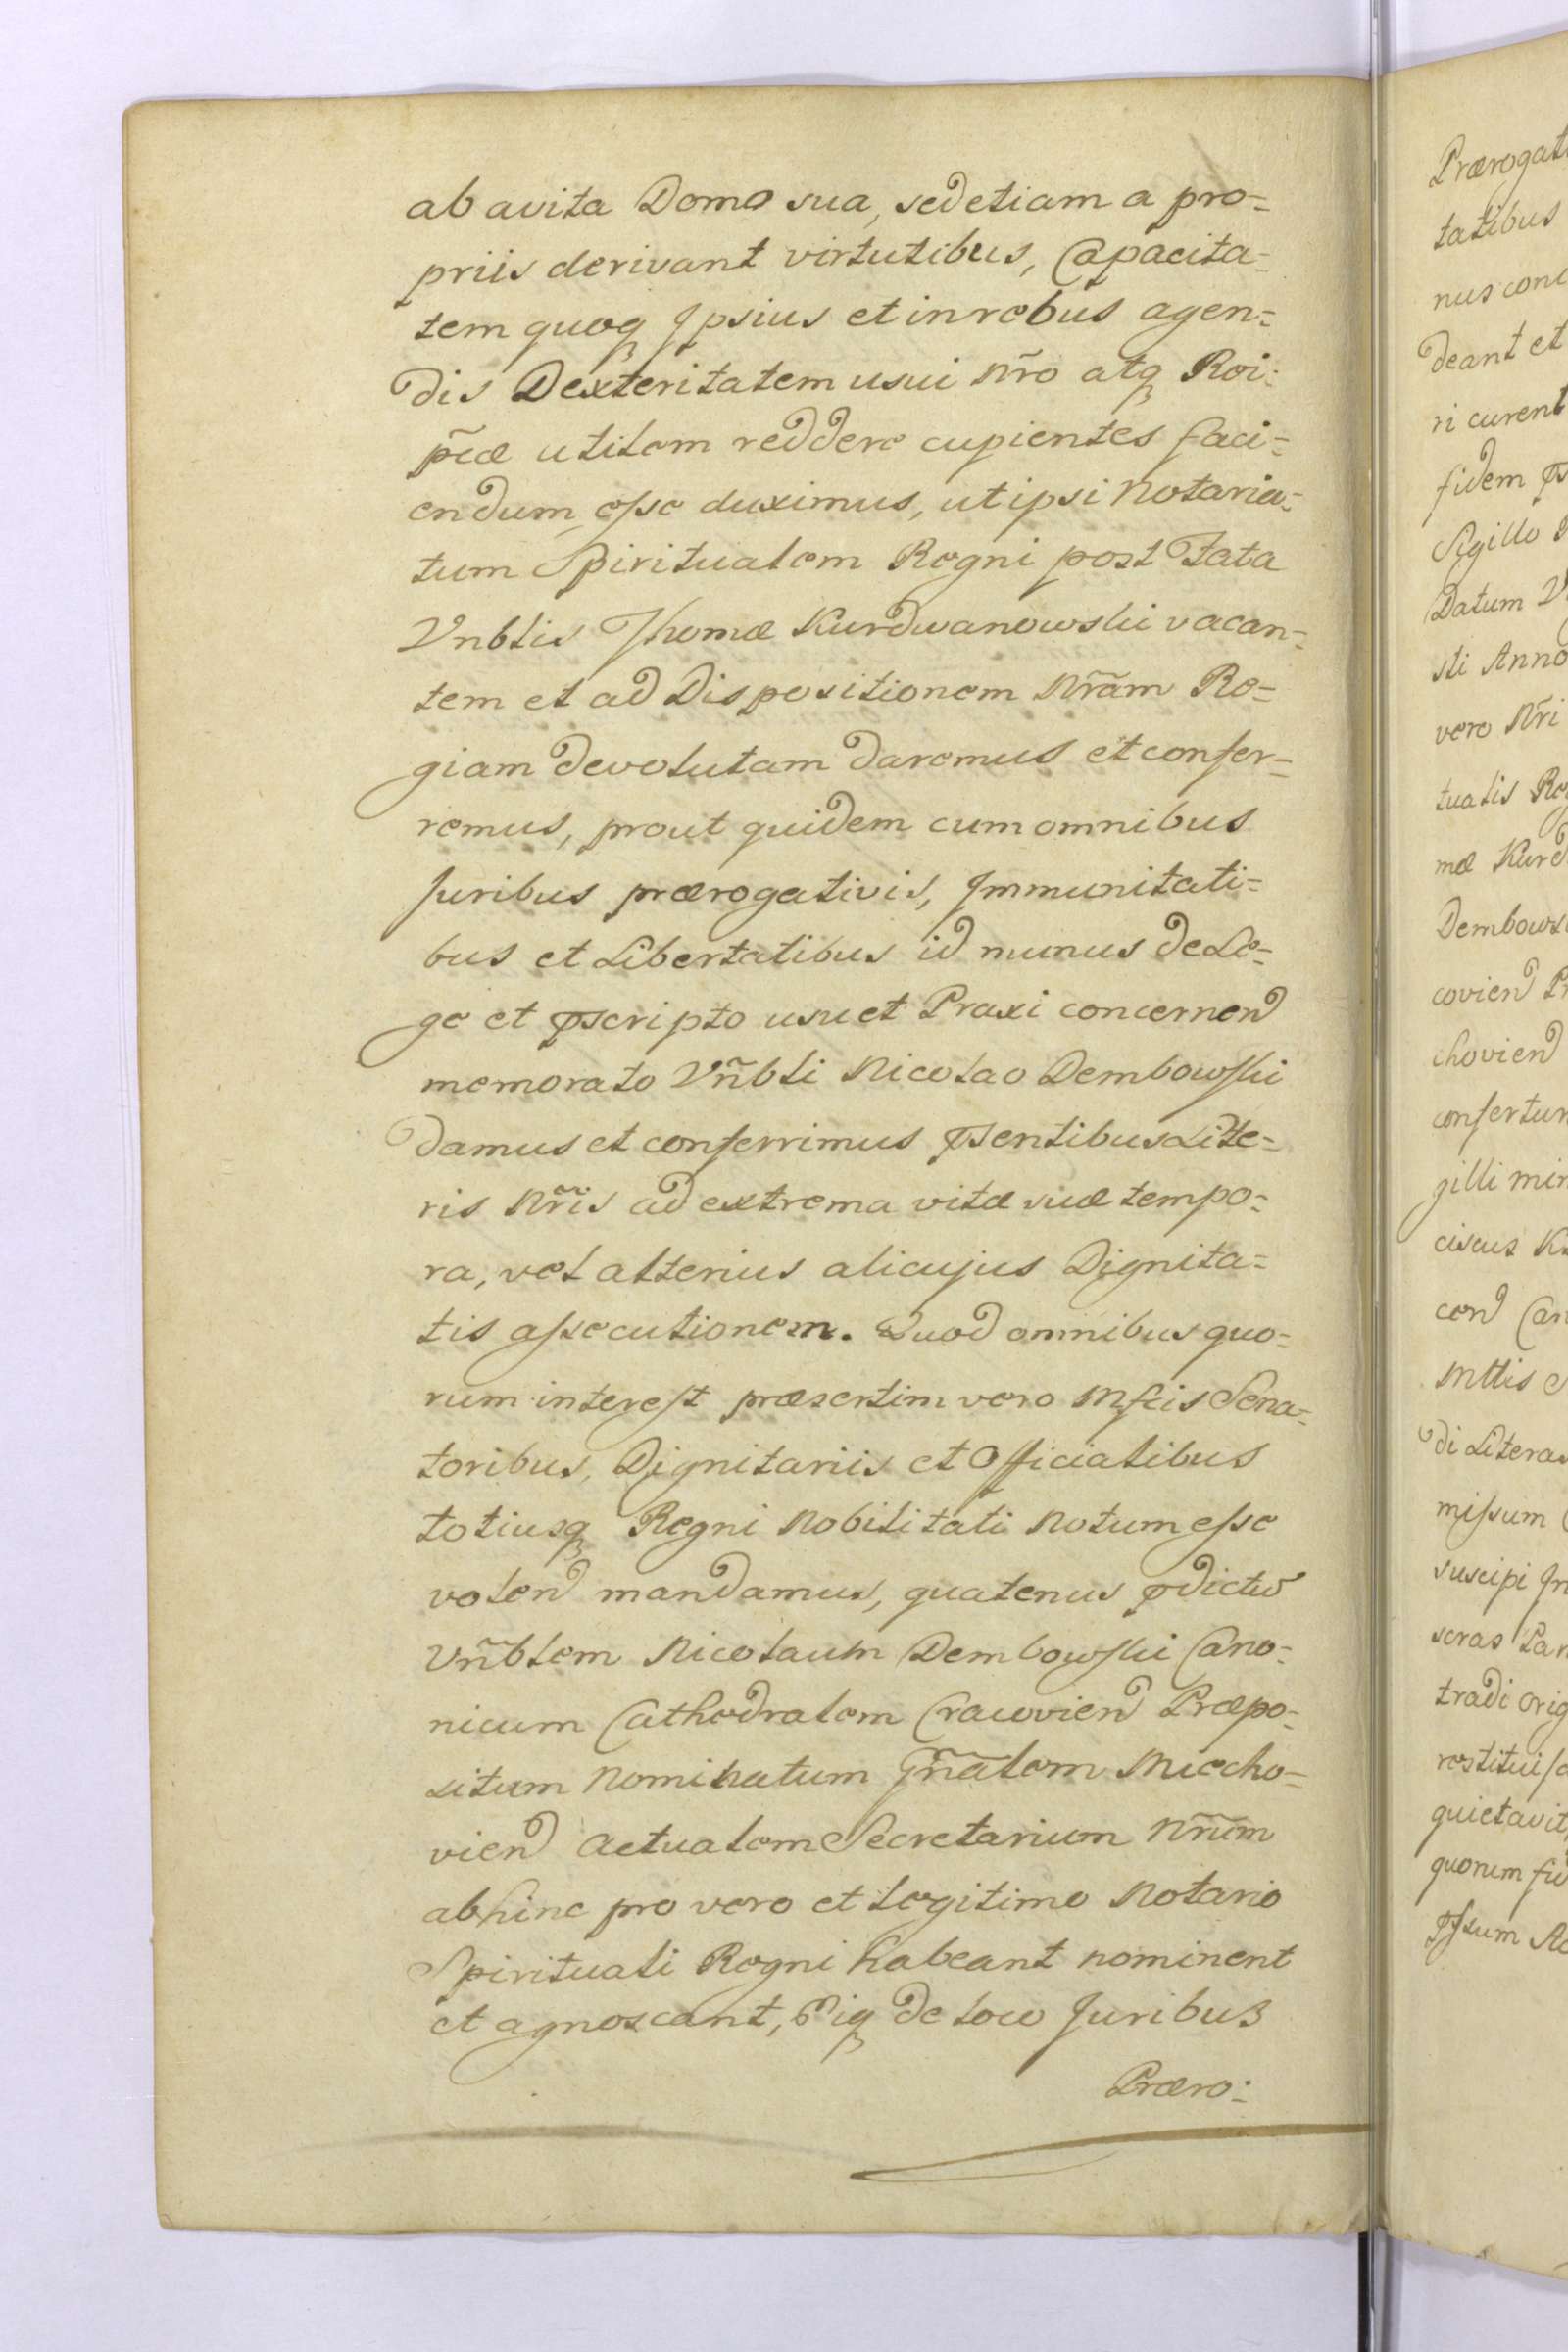 ab avita Domo sua, sed etiam a pro=
priis derivant virtutibus, Capacita=
tem quoq Ipsius et in rebus agen=
dis Dexteritatem usui Nr̃o atq Rei:
pc̃æ utilem reddere cupientes faci=
endum esse duximus, ut ipsi Notaria=
tum Spiritualem Regni post Fata
Vnblis Thomæ Kurdwanowski vacan=
tem et ad Dispositionem Nr̃am Re=
giam devolutam daremus et confer=
remus, prout quidem cum omnibus
Juribus prærogativis, Immunitati=
bus et Libertatibus id munus de Le=
ge et pscripto usu et Praxi concernen
memorato Vñbli Nicolao Dembowski
damus et conferrimus psentibus Lite=
ris Nr̃is ad extrema vitæ suæ tempo=
ra, vel alterius alicujus Dignita=
tis assecutionem. Quod omnibus quo=
rum interest præsertim vero Mfcis Sena=
toribus, Dignitariis et Officialibus
totiusq Regni Nobilitati Notum esse
volen mandamus, quatenus pdictũ
Vñblem Nicolaum Dembowski Cano=
nicum Cathedralem Cracovien Præpo=
situm Nominatum Gñalem Miecho=
vien Actualem Secretarium Nr̃um
abhinc pro vero et legitimo Notario
Spirituali Regni habeant nominent
et agnoscant, Eiq de loco Juribus
Præro:
Prærogati
tatibus
nus conc
deant et
ri curent
fidem
Sigillo
Datum
sti Anno
vero Nr̃i
tualis Re
mæ Kurd
Dembows
covien Pr
chovien
confertur
gilli min
ciscus
cen Can
Mttis
di Literas
missum
suscipi In
seras
tradi orig
restituisse
quietavit
quorum fid
pssum Ac